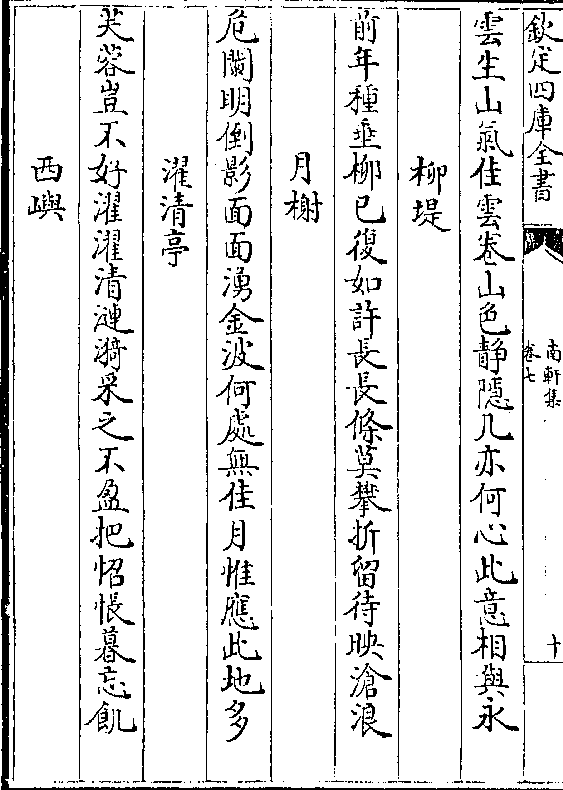 欽定四庫全書
南軒集
卷七
十
雲生山氣佳雲卷山色静隱几亦何心此意相與永
柳堤
前年種垂柳已復如許長長條莫攀折留待映滄浪
月榭
危闌明倒影面面湧金波何處無佳月惟應此地多
濯清亭
芙蓉豈不好濯濯清漣漪采之不盈把怊悵暮忘飢
西嶼